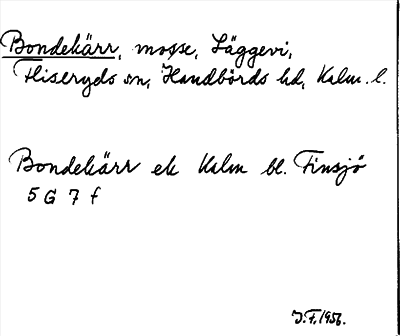 Bondekärr, mosse, Läggevi,
Fliseryds sn, Handbörds hd, Kalm. l.
Bondekärr ek Kalm bl. Finsjö
5 G 7 f
J.F. 1956.